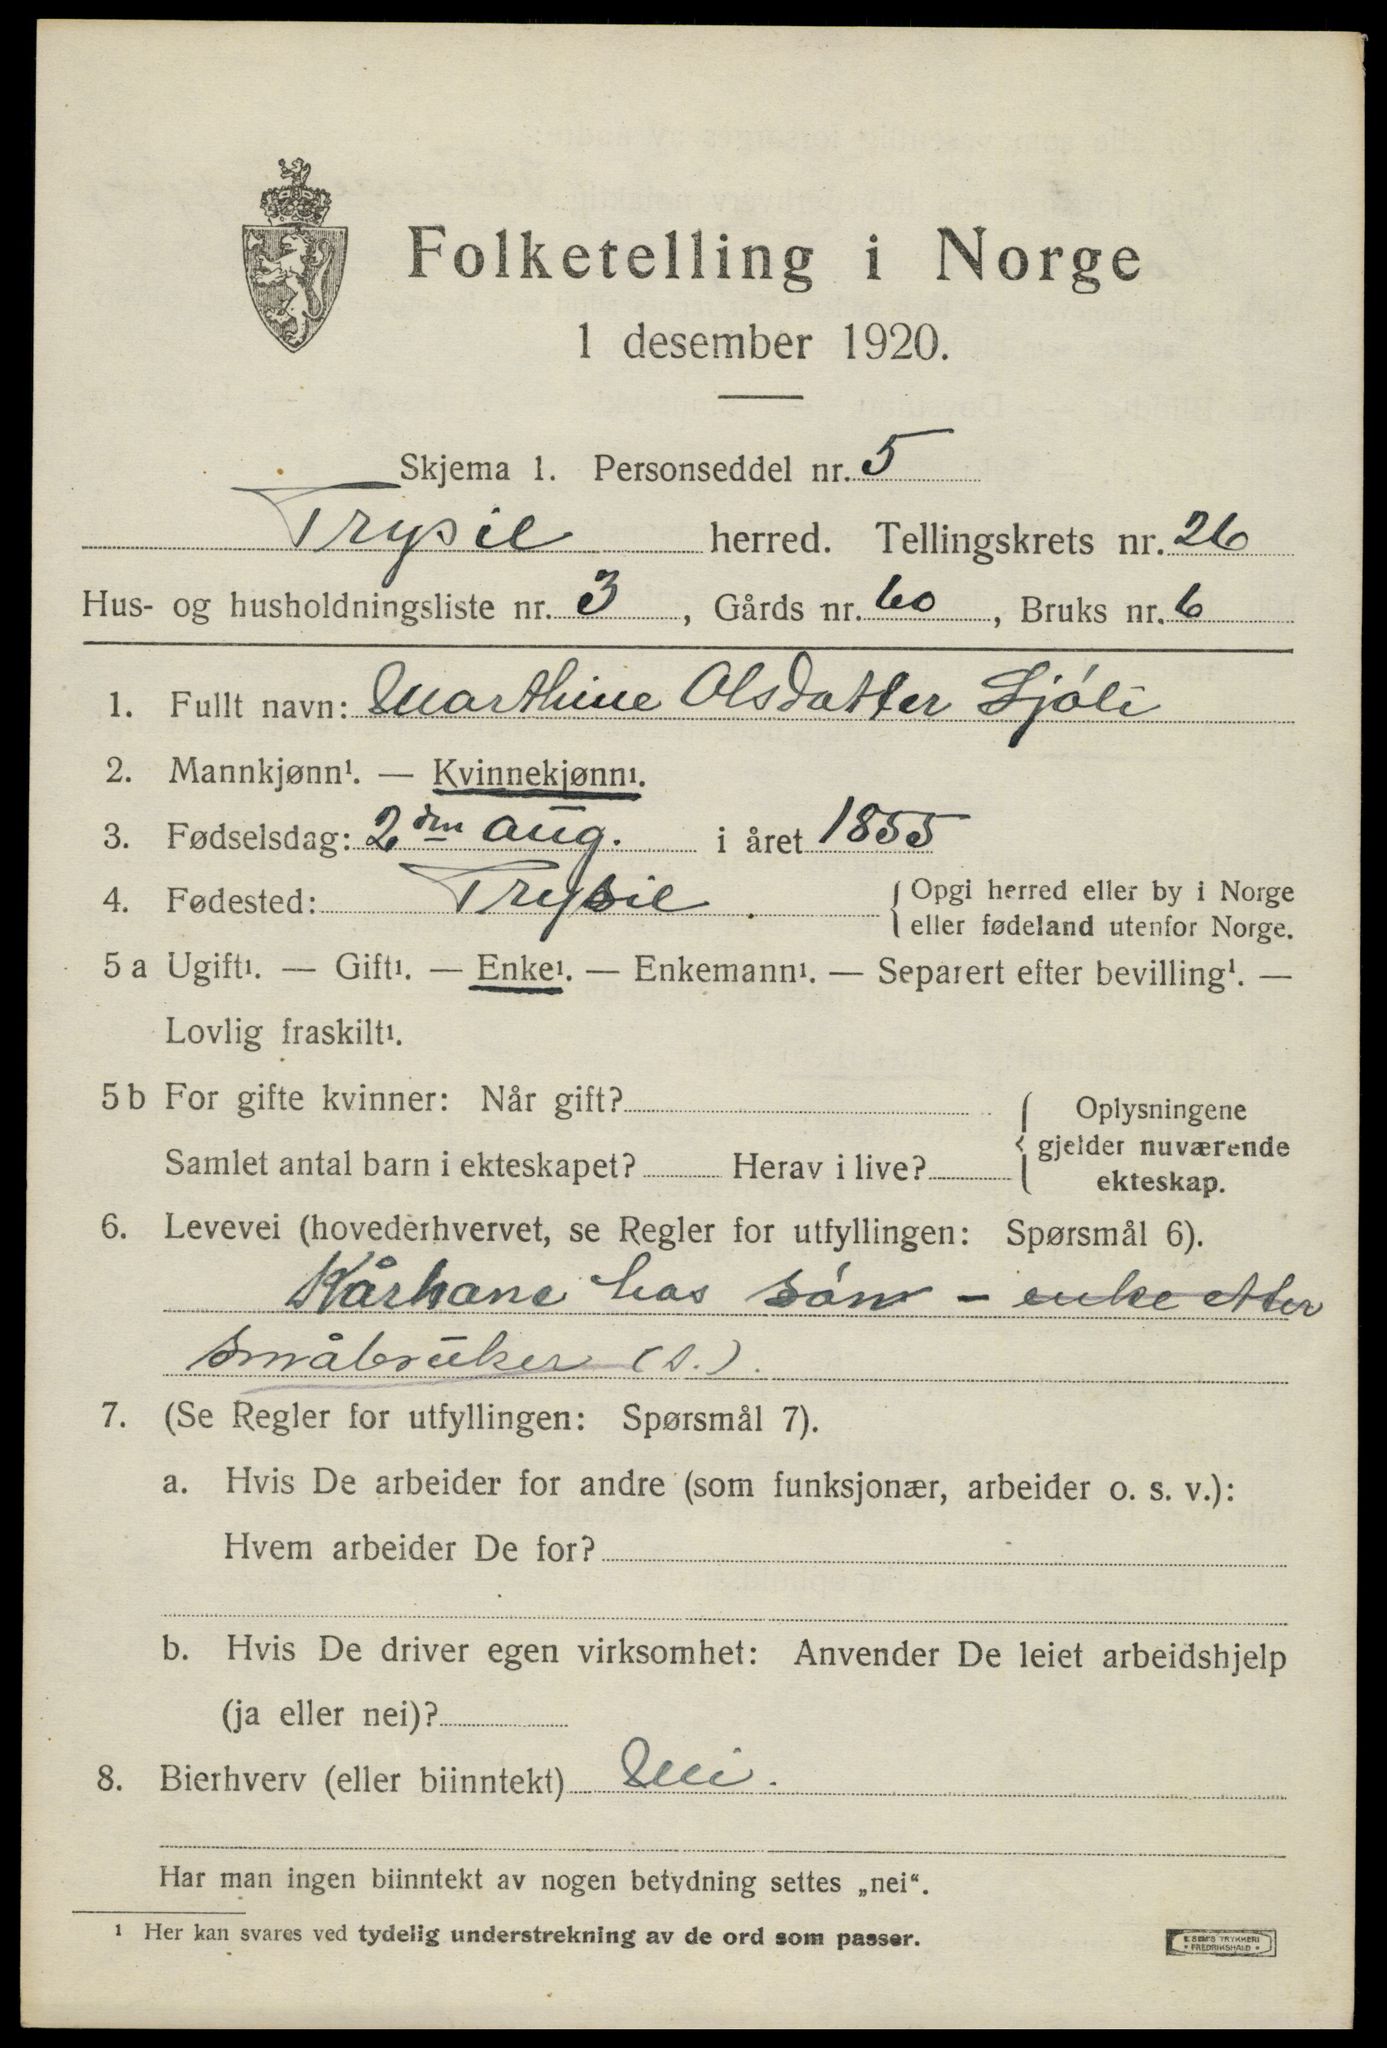 Folketelling i Norge
1 desember 1920.
Skjema 1. Personseddel nr. 5
Trysil herred. Tellingskrets nr. 26
Hus- og husholdningsliste nr. 3, Gårds nr. 60, Bruks nr. 6
1. Fullt navn: Marthine Olsdatter Sjöli
2. Mannkjønn¹. — Kvinnekjønn¹.
3. Fødselsdag: 2den aug. i året 1855
4. Fødested: Trysil { Opgi herred eller by i Norge
eller fødeland utenfor Norge.
5 a Ugift¹. — Gift¹. — Enke¹. — Enkemann¹. — Separert efter bevilling¹. —
Lovlig fraskilt¹.
5 b For gifte kvinner: Når gift?
Samlet antal barn i ekteskapet? Herav i live?
{ Oplysningene
gjelder nuværende
ekteskap.
6. Levevei (hovederhvervet, se Regler for utfyllingen: Spørsmål 6).
Kårkone hos sön - enke etter
småbruker (s.).
7. (Se Regler for utfyllingen: Spørsmål 7).
a. Hvis De arbeider for andre (som funksjonær, arbeider o. s. v.):
Hvem arbeider De for?
b. Hvis De driver egen virksomhet: Anvender De leiet arbeidshjelp
(ja eller nei)?
8. Bierhverv (eller biinntekt) Nei.
Har man ingen biinntekt av nogen betydning settes „nei“.
¹ Her kan svares ved tydelig understrekning av de ord som passer.
E SEM'S TRYKKERI
• FREDRIKSHALD •